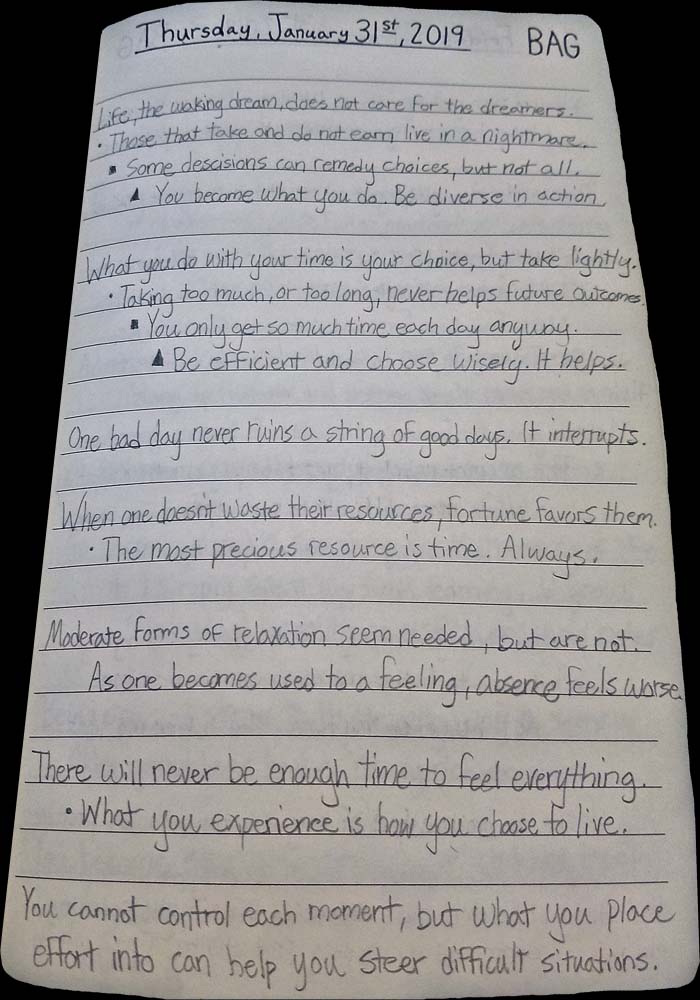 Thursday, January 31st, 2019 BAG
Life, the waking dream, does not care for the dreamers.
• Those that take and do not earn live in a nightmare.
▪ Some descisions can remedy choices, but not all.
▲ You become what you do. Be diverse in action.
What you do with your time is your choice, but take lightly.
• Taking too much, or too long, never helps future outcomes.
▪ You only get so much time each day anyway.
▲ Be efficient and choose wisely. It helps.
One bad day never ruins a string of good days. It interrupts.
When one doesn't waste their resources, fortune favors them.
• The most precious resource is time. Always.
Moderate forms of relaxation seem needed, but are not.
As one becomes used to a feeling, absence feels worse.
There will never be enough time to feel everything.
• What you experience is how you choose to live.
You cannot control each moment, but what you place
effort into can help you steer difficult situations.